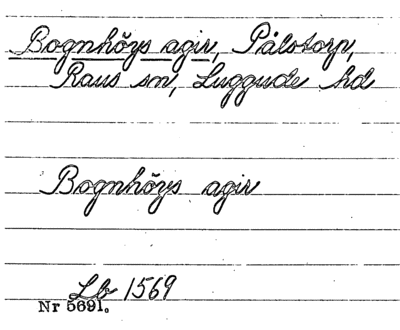 Bognhöys agir, Pålstorp,
Raus sn, Luggude hd
Bognhöys agir
Lb 1569
Nr 5691.